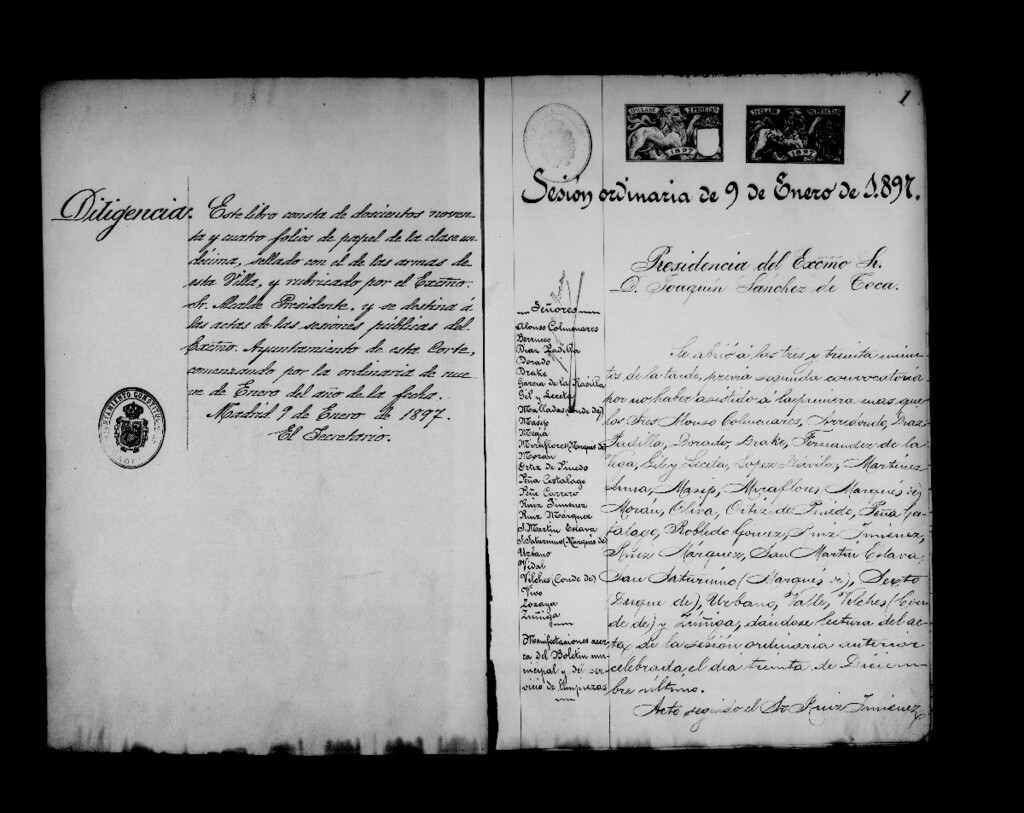 Diligencia. Este libro consta de doscientos noven-
ta y cuatro folios de papel de la clase un-
décima, sellado con el de las armas de
esta Villa, y rubricado por el Excmo.
Sr. Alcalde Presidente, y se destina á
las actas de las sesiones públicas del
Excmo. Ayuntamiento de esta Corte,
comenzando por la ordinaria de nue-
ve de Enero del año de la fecha.
Madrid 9 de Enero de 1897.
El Secretario.
AYUNTAMIENTO CONSTITUCIONAL
1
11ª CLASE 2 PESETAS
1897
PESETAS
1897
Sesión ordinaria de 9 de Enero de 1.897.
Presidencia del Excmo Sr.
D. Joaquín Sánchez de Toca.
Señores
Alonso Colmenares
Berrueco
Diaz Padilla
Dorado
Drake
Garcia de la
Gil y Leceta
Malladas (Conde de)
Masip
Mejia
Miraflores (Marques de)
Morán
Ortiz de Pinedo
Peña Costalago
Peñe Carrero
Ruiz Jimenez
Ruiz Márquez
S. Martin Eslava
S. Saturnino (Marques de)
Urbano
Vidal
Vilches (Conde de)
Vivo
Lozaya
Zúñiga
Manifestaciones acer-
ca del Boletin mu-
nicipal y del ser-
vicio de limpiezas
Se abrió á las tres y treinta minu-
tos de la tarde, previa segunda convocatoria
por no haber asistido á la primera mas que
los Sres Alonso Colmenares, Arredondo, Diaz
Padilla, Dorado, Drake, Fernandez de la
Vega, Gil y Leceta, Lopez Dávila, Martinez
Luna, Masip, Miraflores (Marqués de)
Morán, Oliva, Ortiz de Pinedo, Peña Cos-
talago, Robledo Gomez, Ruiz Jiménez,
Ruiz Márquez, San Martin Eslava
San Saturnino (Marqués de), Sexto
(Duque de), Urbano, Valle, Vilches (Con-
de de) y Zúñiga, dandose lectura del ac-
ta de la sesión ordinaria anterior
celebrada el dia treinta de Diciem-
bre último.
Acto seguido el Sr Ruiz Jiménez